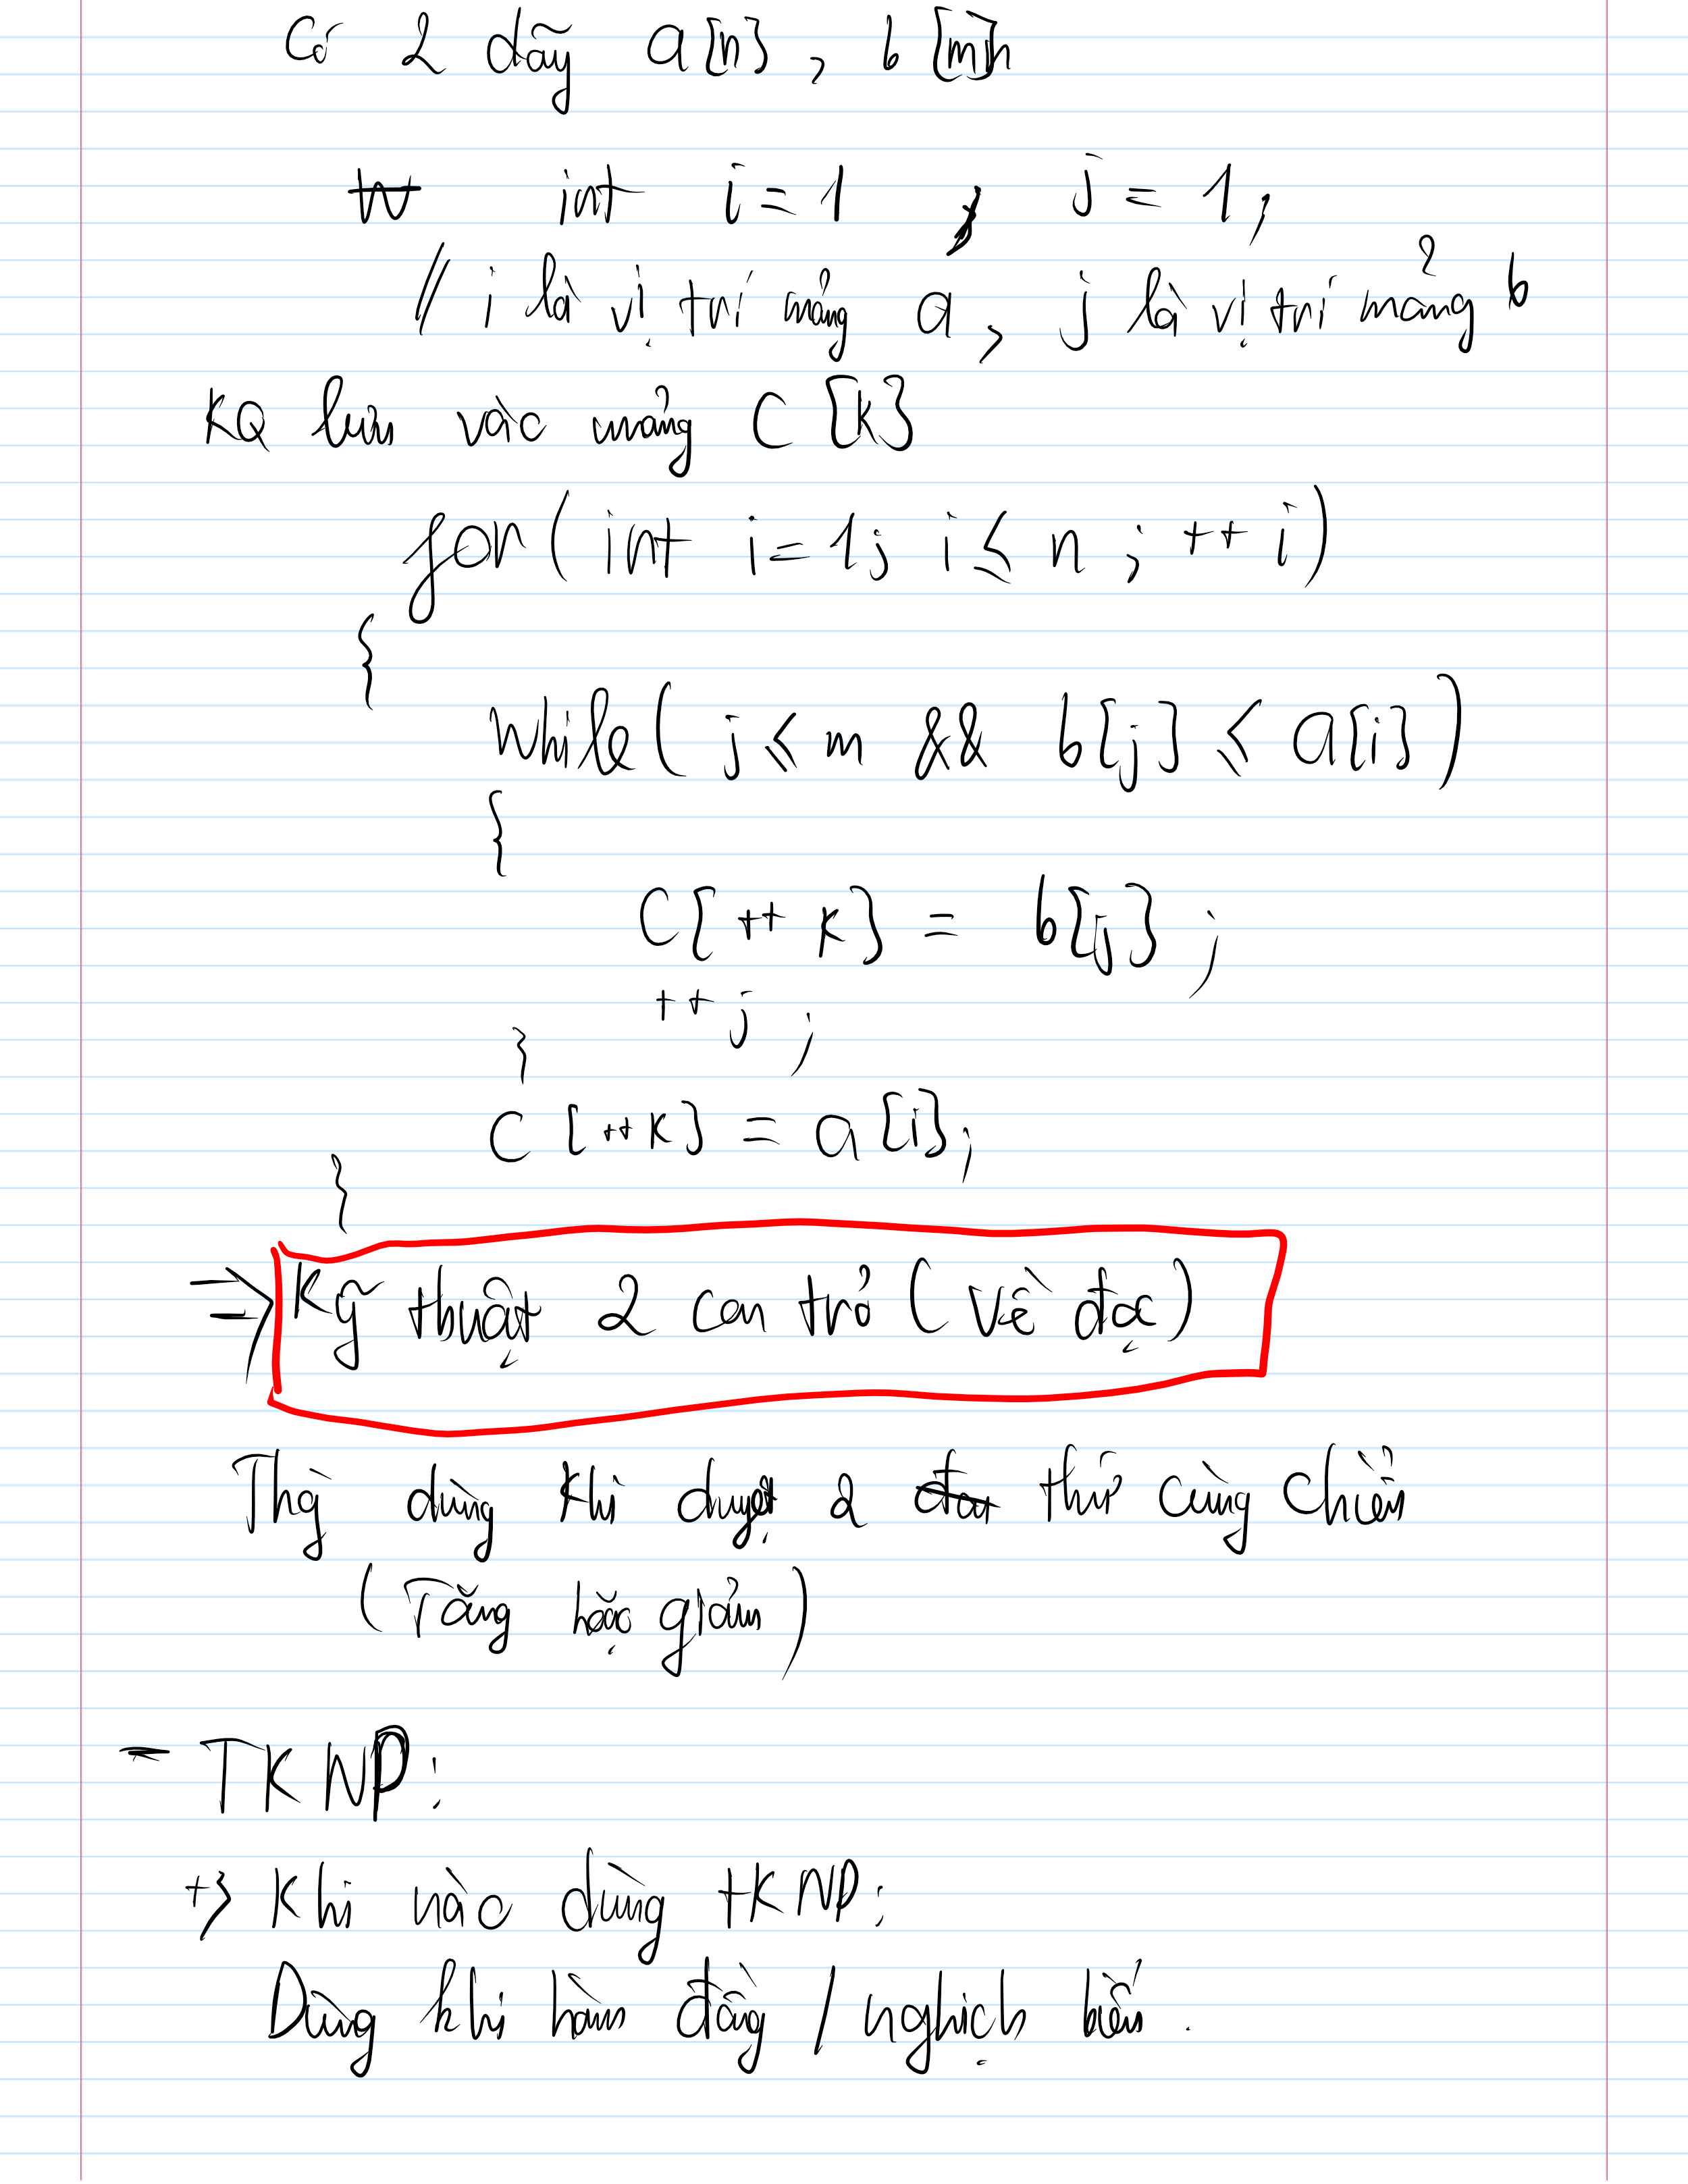 Có 2 dãy a[n], b[m]
int i = 1, j = 1;
// i là vị trí mảng a, j là vị trí mảng b
KQ lưu vào mảng C[k]
for(int i = 1; i ≤ n; ++i)
{
while(j ≤ m && b[j] ≤ a[i])
{
C[++k] = b[j];
++j;
}
C[++k] = a[i];
}
=> Kỹ thuật 2 con trỏ (Về đọc)
dùng khi duyệt 2 thứ cùng chiều
(Tăng hoặc giảm)
- TKNP:
+> Khi nào dùng tKNP:
Dùng khi hàm đồng / nghịch biến.